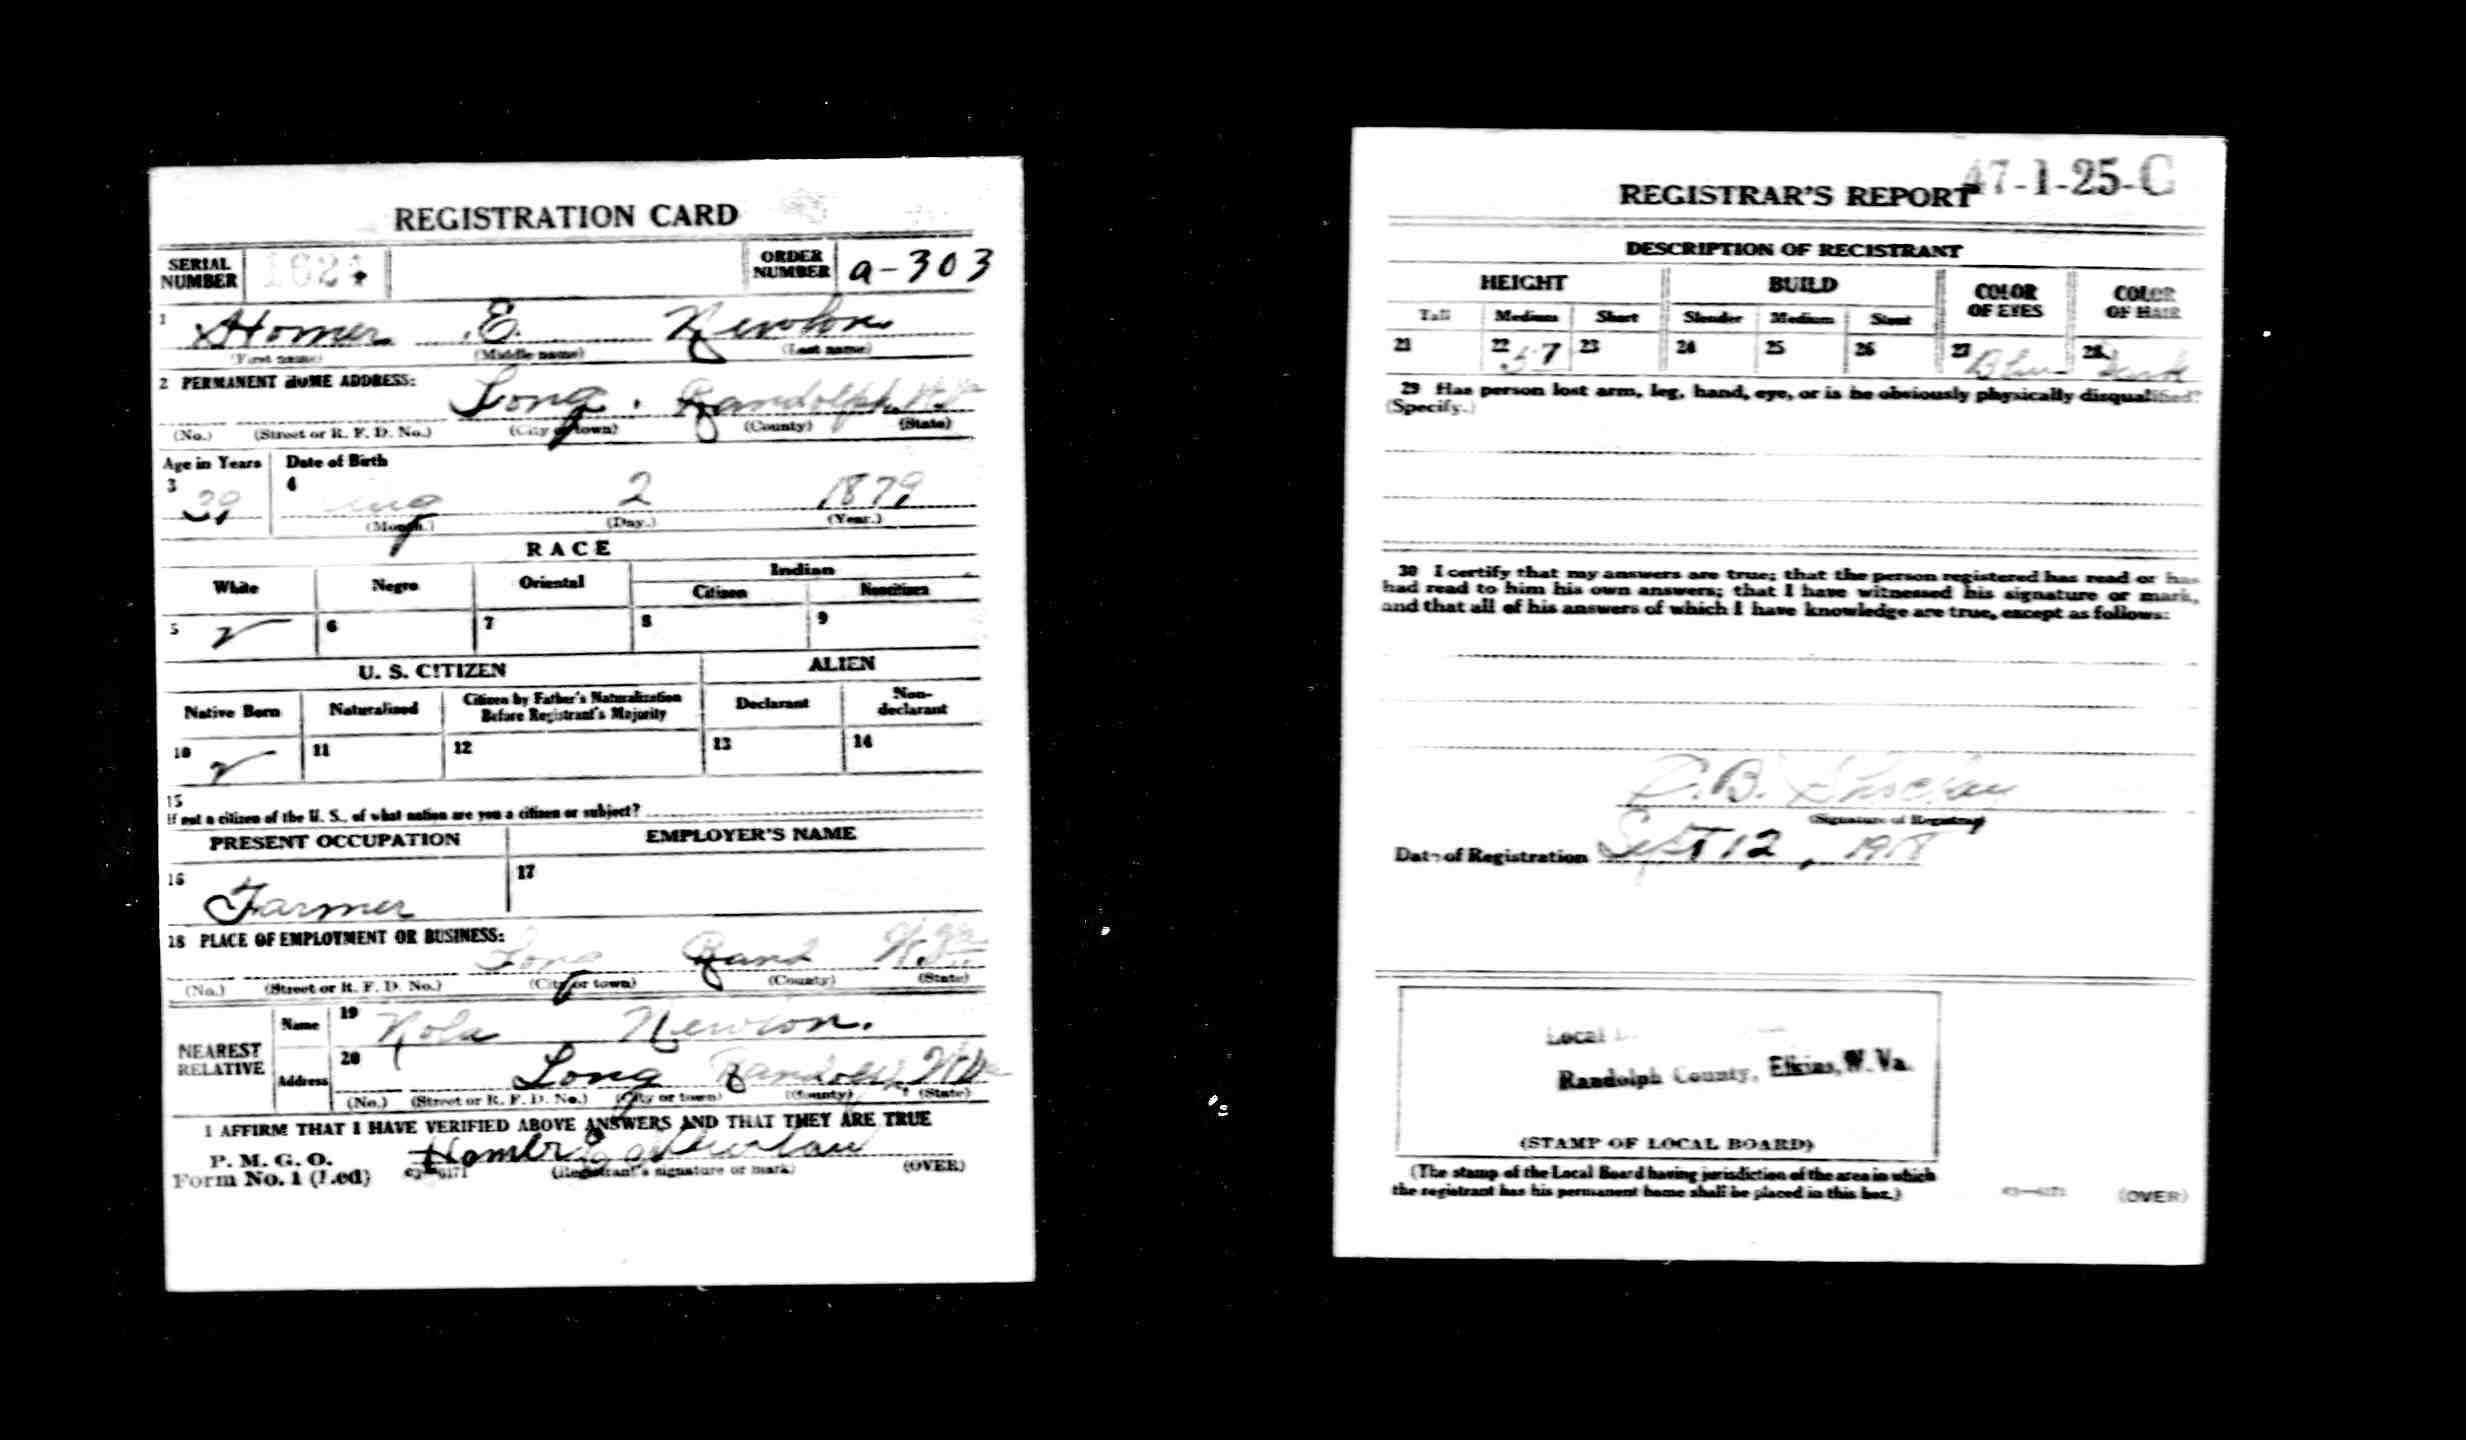 REGISTRATION CARD
SERIAL NUMBER 1624 ORDER NUMBER a-303
1 Homer E. Newlon
(First name) (Middle name) (Last name)
2 PERMANENT HOME ADDRESS:
Long. Randolph W.Va
(No.) (Street or R. F. D. No.) (City or town) (County) (State)
Age in Years Date of Birth
3 39 4 Aug 2 1879
(Month.) (Day.) (Year.)
RACE
White Negro Oriental Indian
Citizen Noncitizen
5 6 7 8 9
U. S. CITIZEN ALIEN
Native Born Naturalized Citizen by Father's Naturalization Before Registrant's Majority Declarant Non-declarant
10 11 12 13 14
15
If not a citizen of the U. S., of what nation are you a citizen or subject?
PRESENT OCCUPATION EMPLOYER'S NAME
16 Farmer 17
18 PLACE OF EMPLOYMENT OR BUSINESS:
Long Rand W.Va
(No.) (Street or R. F. D. No.) (City or town) (County) (State)
NEAREST RELATIVE Name 19 Newlon.
Address 20 Long Randolph, W.Va
(No.) (Street or R. F. D. No.) (City or town) (County) (State)
I AFFIRM THAT I HAVE VERIFIED ABOVE ANSWERS AND THAT THEY ARE TRUE
P. M. G. O.
Form No. 1 (Red) 03—6171 Homer E Newlon (Registrant's signature or mark) (OVER)
47-1-25-C
REGISTRAR'S REPORT
DESCRIPTION OF REGISTRANT
HEIGHT BUILD COLOR OF EYES COLOR OF HAIR
Tall Medium Short Slender Medium Stout
21 22 5-7 23 24 25 26 27 Blue 28 Dark
29 Has person lost arm, leg, hand, eye, or is he obviously physically disqualified?
(Specify.)
30 I certify that my answers are true; that the person registered has read or has
had read to him his own answers; that I have witnessed his signature or mark,
and that all of his answers of which I have knowledge are true, except as follows:
(Signature of Registrar)
Date of Registration Sept 12, 1918
Local
Randolph County, Elkins, W. Va.
(STAMP OF LOCAL BOARD)
(The stamp of the Local Board having jurisdiction of the area in which
the registrant has his permanent home shall be placed in this box.)
03—6171 (OVER)